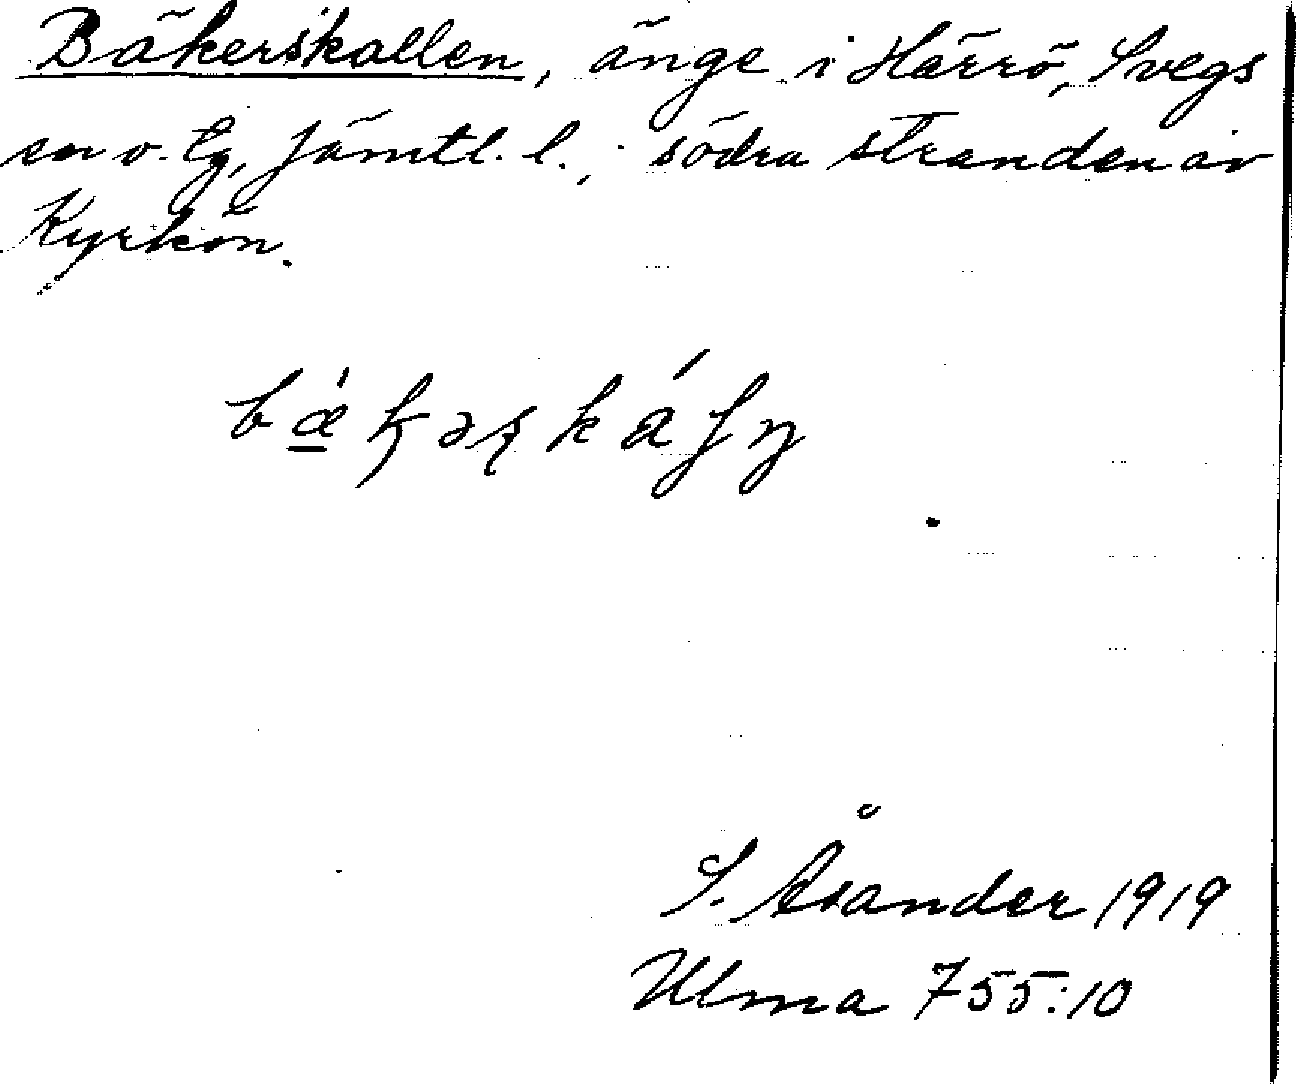 Bäkerskallen, änge i Härrö, Svegs
sn o. lg, Jämtl. l.; södra stranden av
Kyrkön.
S. Åsander 1919
Ulma 755:10